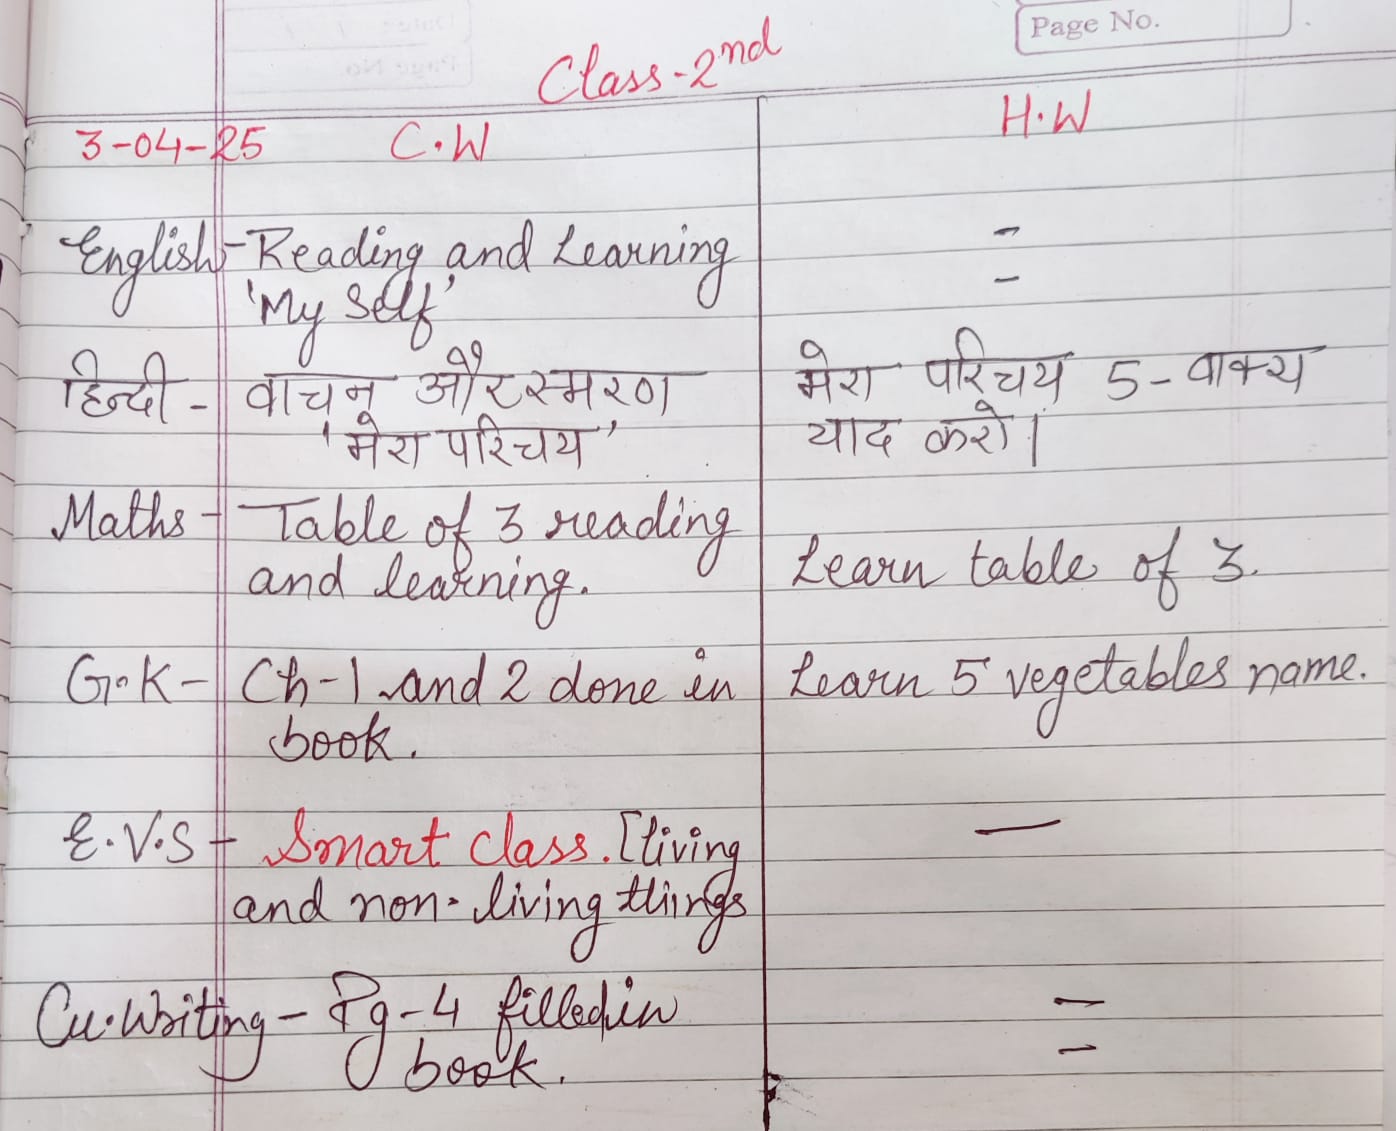 Page No.
Class-2nd
3-04-25 C.W H.W
English - Reading and Learning -
'My Self' -
हिन्दी - वाचन और स्मरण मेरा परिचय 5-वाक्य
'मेरा परिचय' याद करो।
Maths - Table of 3 reading
and learning. Learn table of 3.
G.K - Ch-1 and 2 done in Learn 5 vegetables name.
book.
E.V.S - Smart class. [living —
and non-living things
Cu.Writing - Pg-4 filled in -
book. -